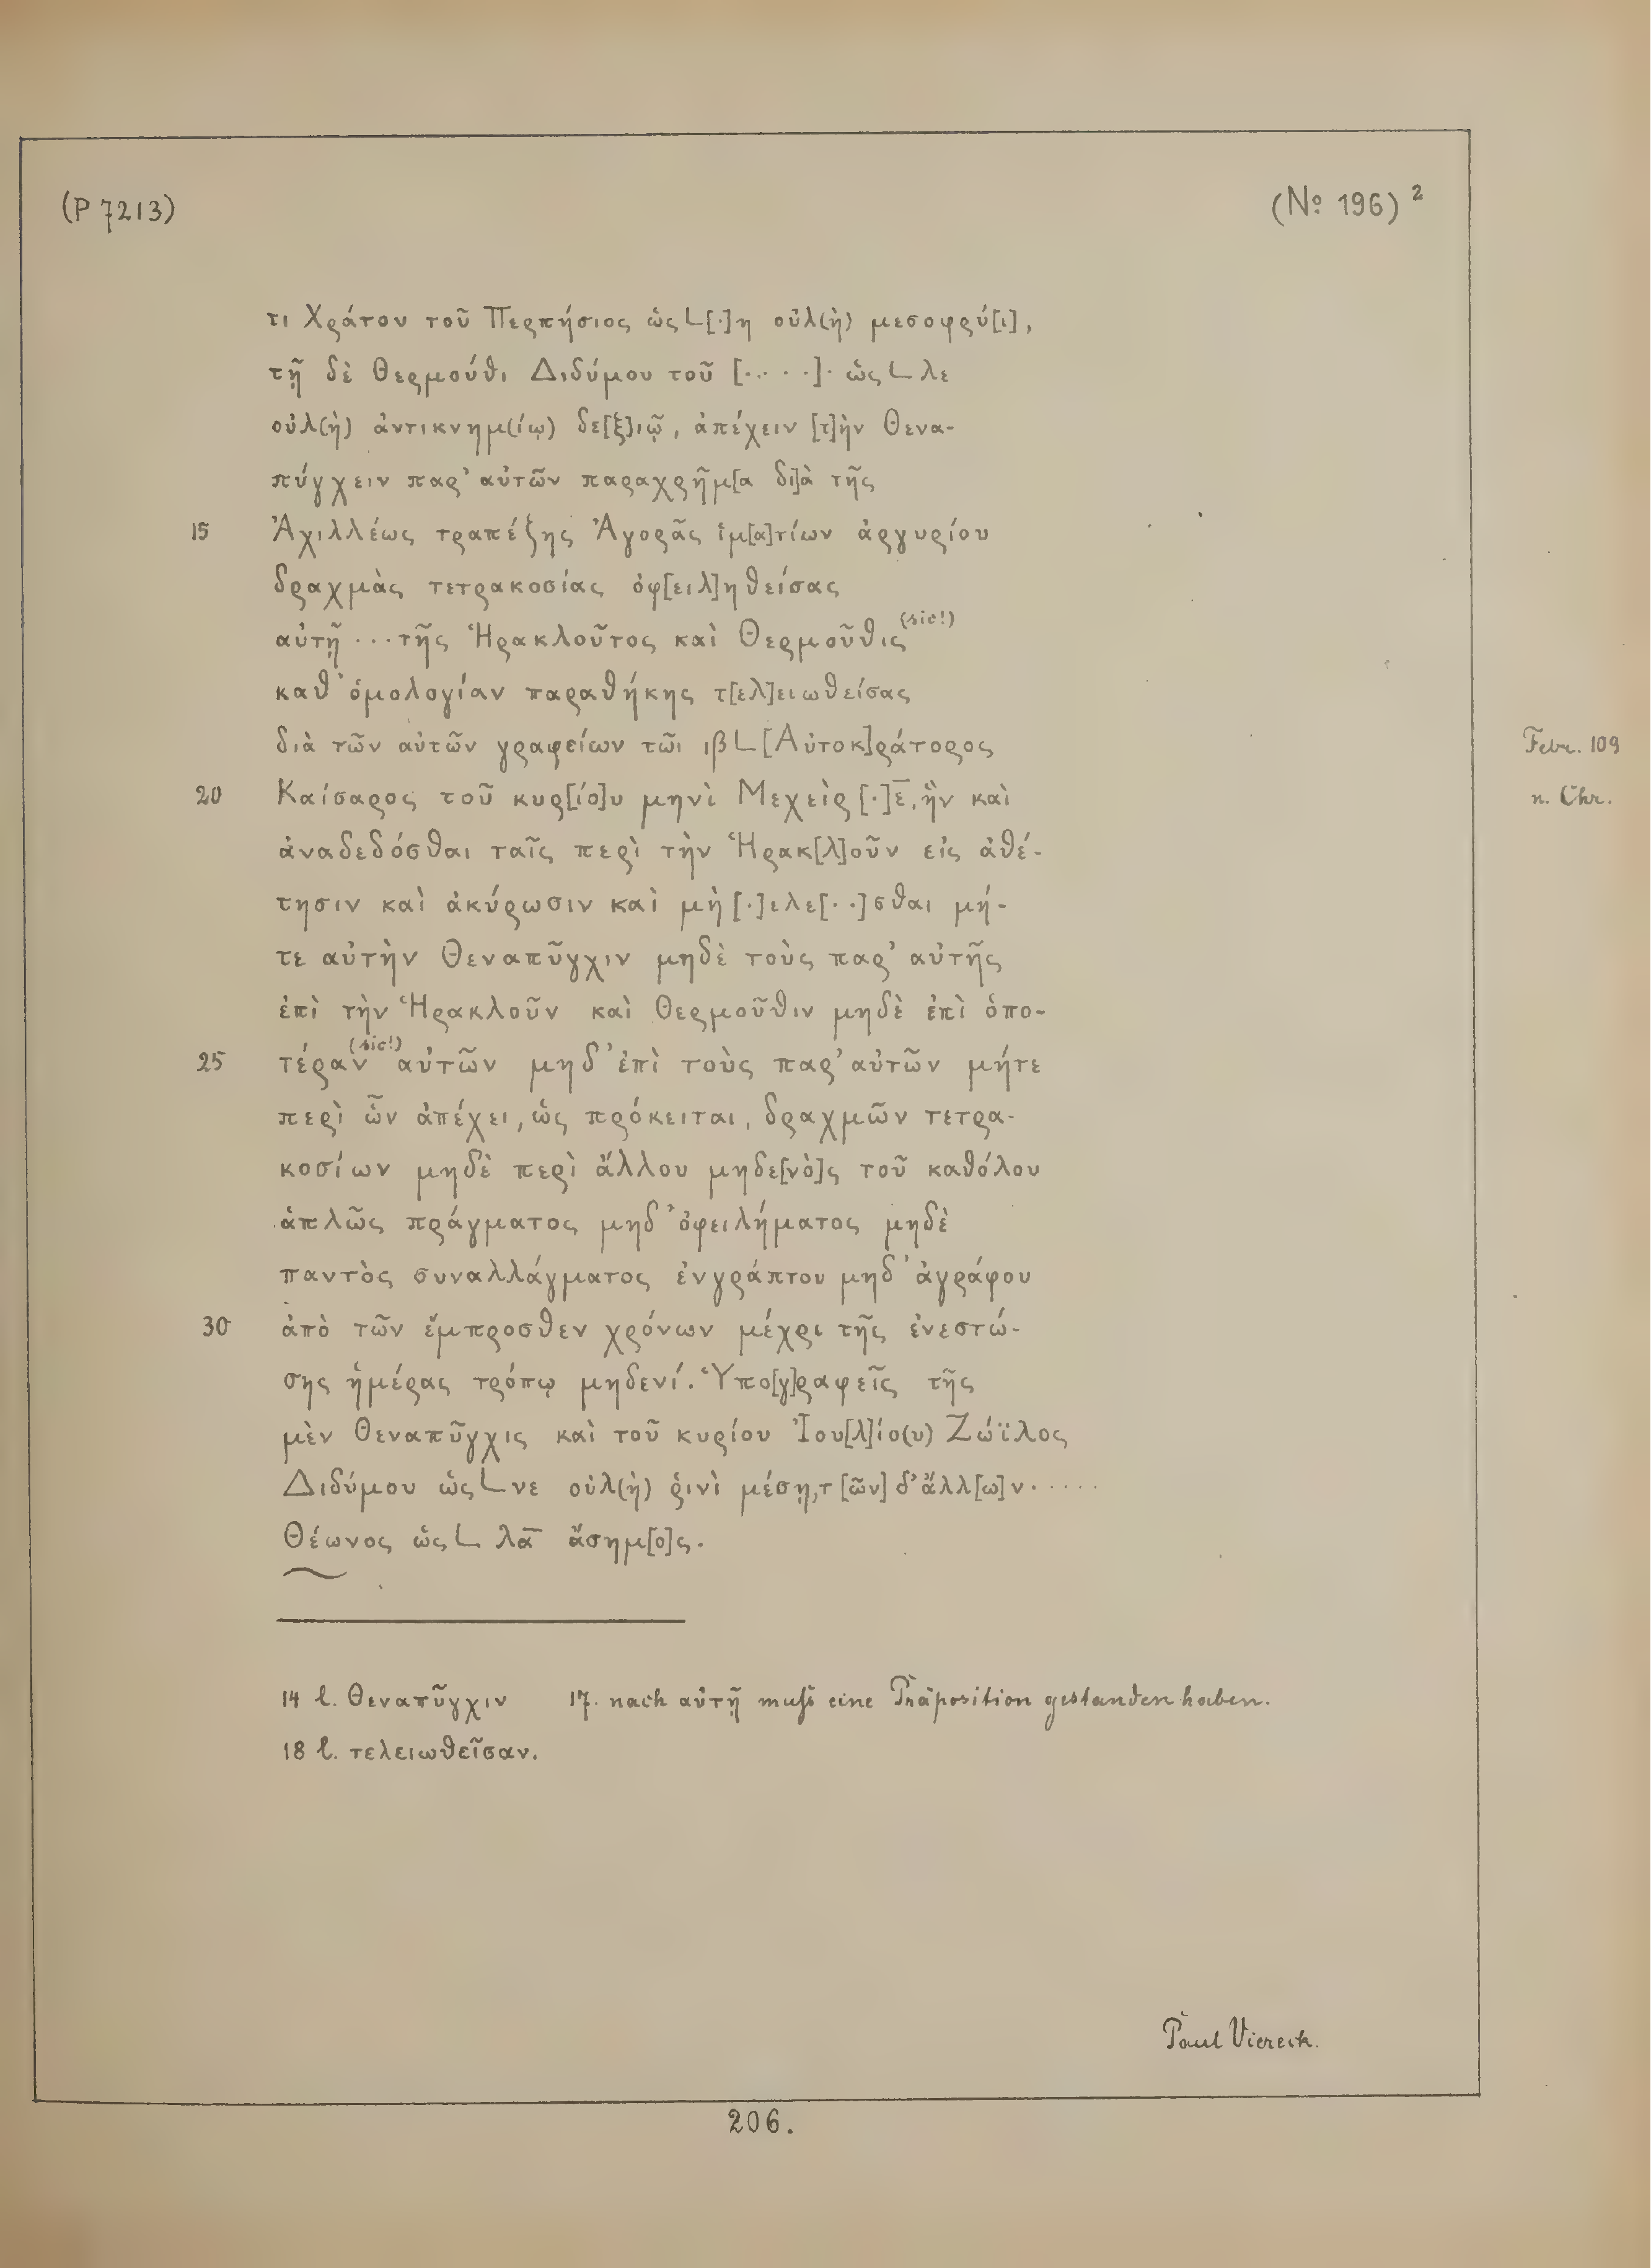 (P 7213) (Nº 196)²
τι Χράτου τοῦ Περπήσιος ὡς L[·]η οὐλ(ὴ) μεσοφρύ[ι],
τῇ δὲ Θερμούθι Διδύμου τοῦ [·· · ·]· ὡς L λε
οὐλ(ὴ) ἀντικνημ(ίῳ) δε[ξ]ιῷ, ἀπέχειν [τ]ὴν Θενα-
πύγχειν παρ' αὐτῶν παραχρῆμ[α δι]ὰ τῆς
15 Ἀχιλλέως τραπέζης Ἀγορᾶς ἱμ[α]τίων ἀργυρίου
δραχμὰς τετρακοσίας ὀφ[ειλ]ηθείσας
αὐτῇ ···τῆς Ἡρακλοῦτος καὶ Θερμοῦθις (sic!)
καθ' ὁμολογίαν παραθήκης τ[ελ]ειωθείσας
διὰ τῶν αὐτῶν γραφείων τῶι ιβ L [Αὐτοκ]ράτορος Febr. 109
20 Καίσαρος τοῦ κυρ[ίο]υ μηνὶ Μεχεὶρ [·]ε̅, ἣν καὶ n. Chr.
ἀναδεδόσθαι ταῖς περὶ τὴν Ἡρακ[λ]οῦν εἰς ἀθέ-
τησιν καὶ ἀκύρωσιν καὶ μὴ [·]ελε[··]σθαι μή-
τε αὐτὴν Θεναπῦγχιν μηδὲ τοὺς παρ' αὐτῆς
ἐπὶ τὴν Ἡρακλοῦν καὶ Θερμοῦθιν μηδὲ ἐπὶ ὁπο-
25 τέραν (sic!) αὐτῶν μηδ' ἐπὶ τοὺς παρ' αὐτῶν μήτε
περὶ ὧν ἀπέχει, ὡς πρόκειται, δραχμῶν τετρα-
κοσίων μηδὲ περὶ ἄλλου μηδε[νὸ]ς τοῦ καθόλου
ἁπλῶς πράγματος μηδ' ὀφειλήματος μηδὲ
παντὸς συναλλάγματος ἐνγράπτου μηδ' ἀγράφου
30 ἀπὸ τῶν ἔμπροσθεν χρόνων μέχρι τῆς ἐνεστώ-
σης ἡμέρας τρόπῳ μηδενί. Ὑπο[γ]ραφεῖς τῆς
μὲν Θεναπῦγχις καὶ τοῦ κυρίου Ἰου[λ]ίο(υ) Ζώϊλος
Διδύμου ὡς L νε οὐλ(ὴ) ῥινὶ μέσῃ, τ[ῶν] δ' ἄλλ[ω]ν·····
Θέωνος ὡς L λα̅ ἄσημ[ο]ς.
14 l. Θεναπῦγχιν 17. nach αὐτῇ muß eine Präposition gestanden haben.
18 l. τελειωθεῖσαν.
Paul Viereck.
206.